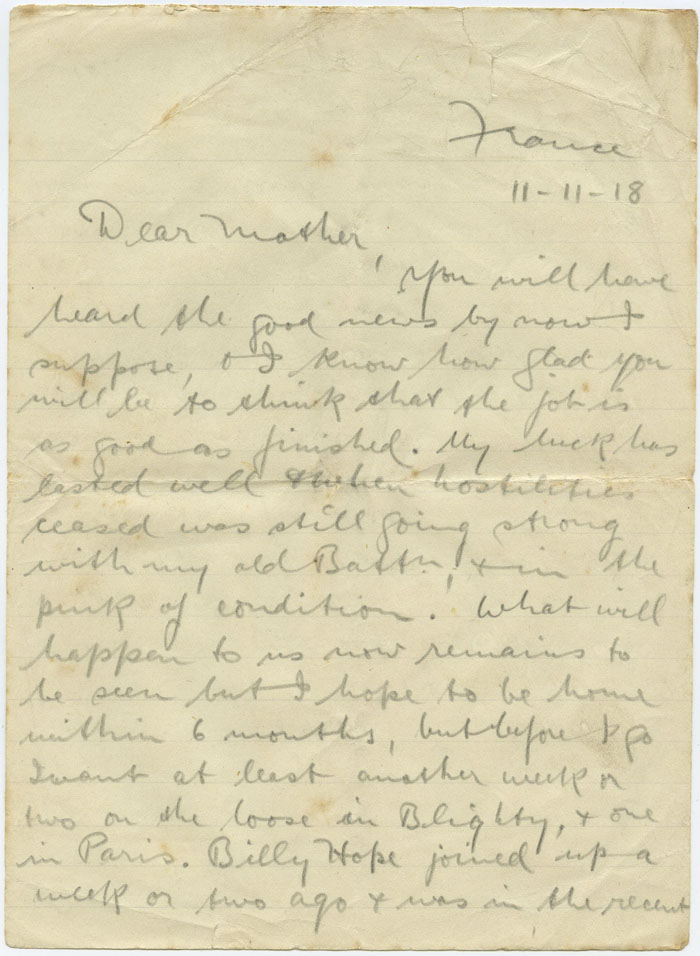 France
11-11-18
Dear Mother,
You will have
heard the good news by now I
suppose, & I know how glad you
will be to think that the job is
as good as finished. My luck has
lasted well & when hostilities
ceased was still going strong
with my old Battn., & in the
pink of condition. What will
happen to us now remains to
be seen but I hope to be home
within 6 months, but before I go
I want at least another week or
two on the loose in Blighty, & one
in Paris. Billy Hope joined up a
week or two ago & was in the recent